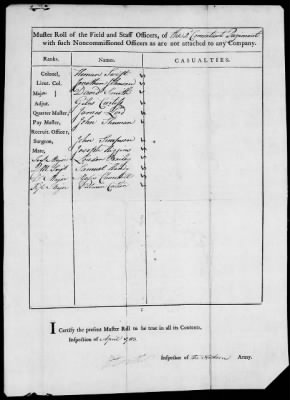 Muster Roll of the Field and Staff Officers, of the 2d Connecticut Regiment
with such Noncommissioned Officers as are not attached to any Company.
Ranks. Names. CASUALTIES.
Colonel, Heman Swift
Lieut. Col. Jonathan Johnson
Major David Smith
Adjut. Giles Curtiss
Quarter Master, James Lord
Pay Master, John Shuman
Recruit. Officer,
Surgeon, John Simpson
Mate, Joseph Higgins
Serjt. Major
Q M Serjt Samuel
D Major Churchill
Fife Major
I Certify the present Muster Roll to be true in all its Contents.
Inspection of April 1783
Inspector of The Northern Army.